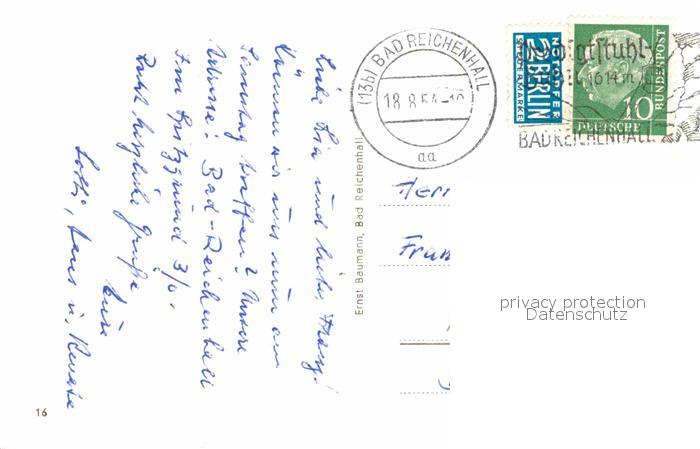 Liebe Lia und lieber Franz!
Können wir uns nun am
Samstag treffen? Unsere
Adresse: Bad-Reichenhall
Im Spitzgrund 3/0.
Recht herzliche Grüße
Eure
Lotte, Hans u. Renate
16
Ernst Baumann, Bad Reichenhall
(13b) BAD REICHENHALL
18.8.54-10
aa
NOTOPFER
2 BERLIN
STEUERMARKE
Predigtstuhl-
1614 m
BAD REICHENHALL
10
DEUTSCHE
BUNDESPOST
Herr
Fran
privacy protection
Datenschutz